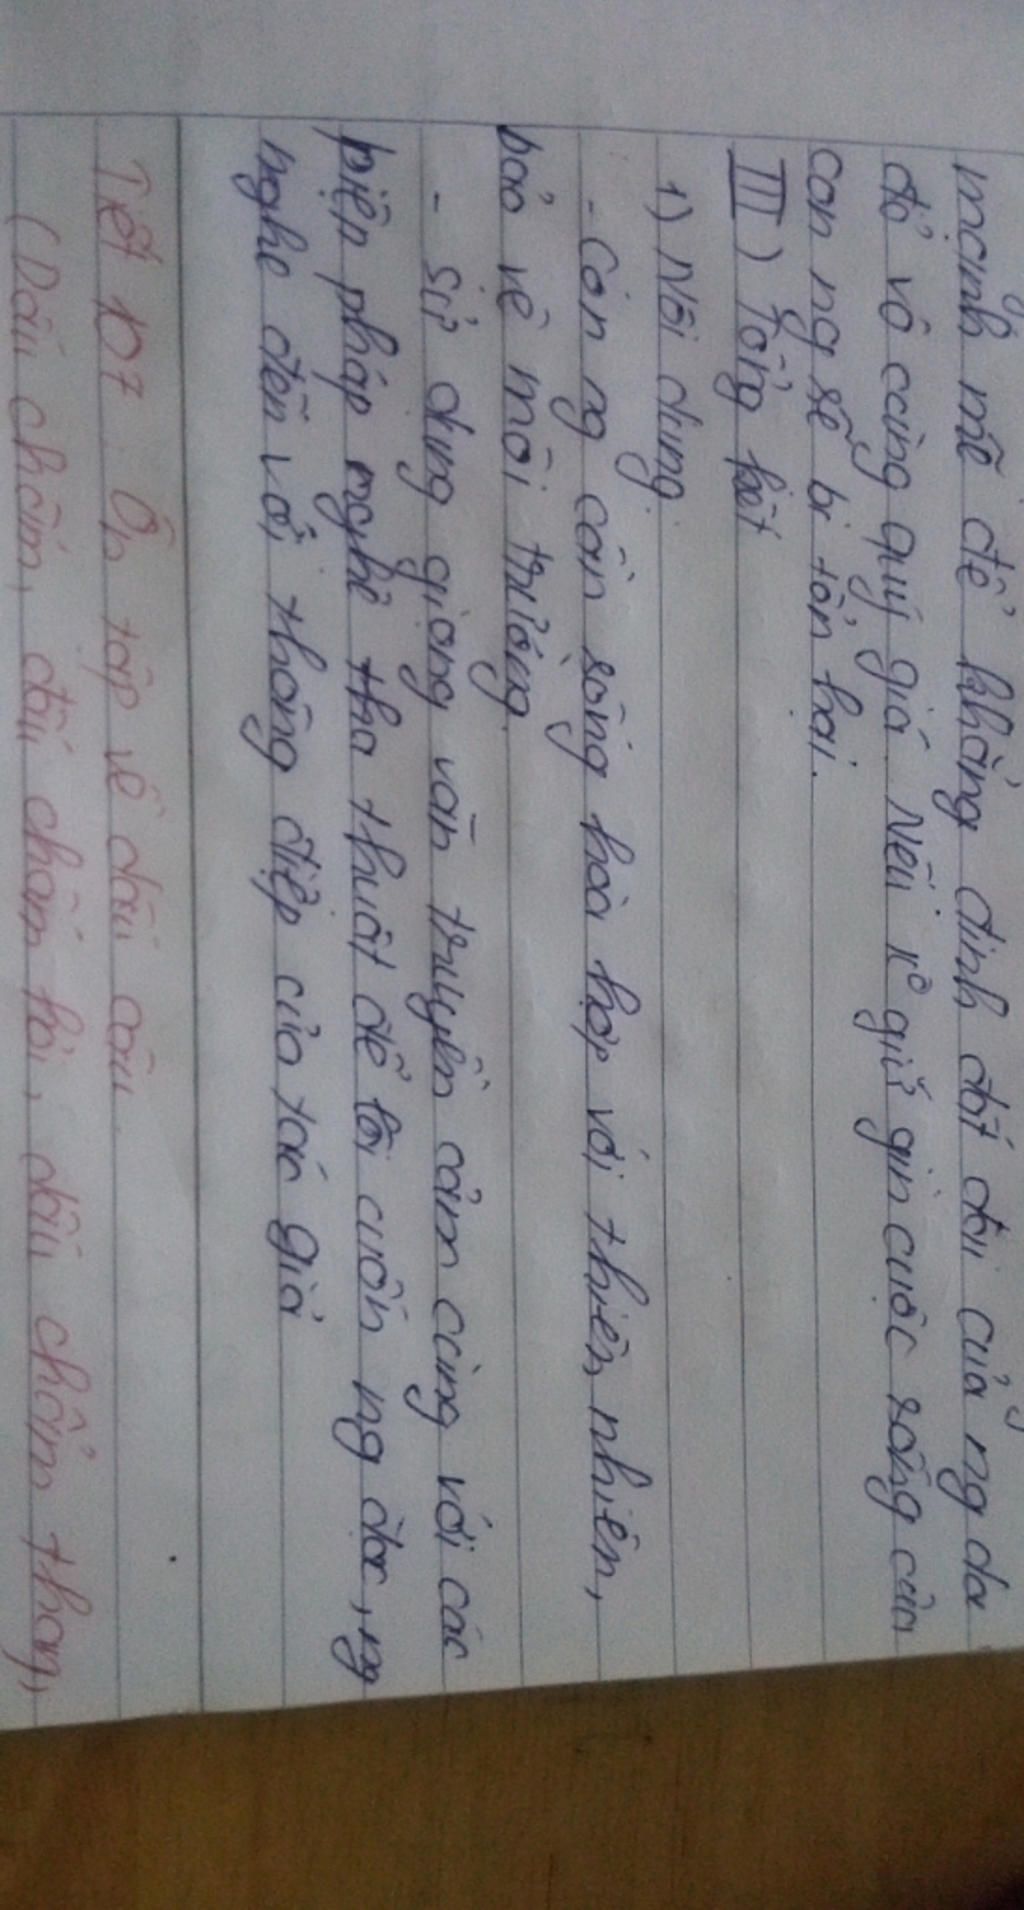 mạnh mẽ để khẳng định đất đai của ng da
đỏ vô cùng quý giá. Nếu ko giữ gìn cuộc sống của
con ng sẽ bị tổn hại.
III) Tổng kết
1) Nội dung
- Con ng cần sống hoà hợp với thiên nhiên,
bảo vệ môi trường.
- Sử dụng giọng văn truyền cảm cùng với các
biện pháp nghệ tha thuật để lôi cuốn ng đọc, ng
nghe đến với thông điệp của tác giả
Tiết 107 Ôn tập về dấu câu
(Dấu chấm, dấu chấm hỏi, dấu chấm than),